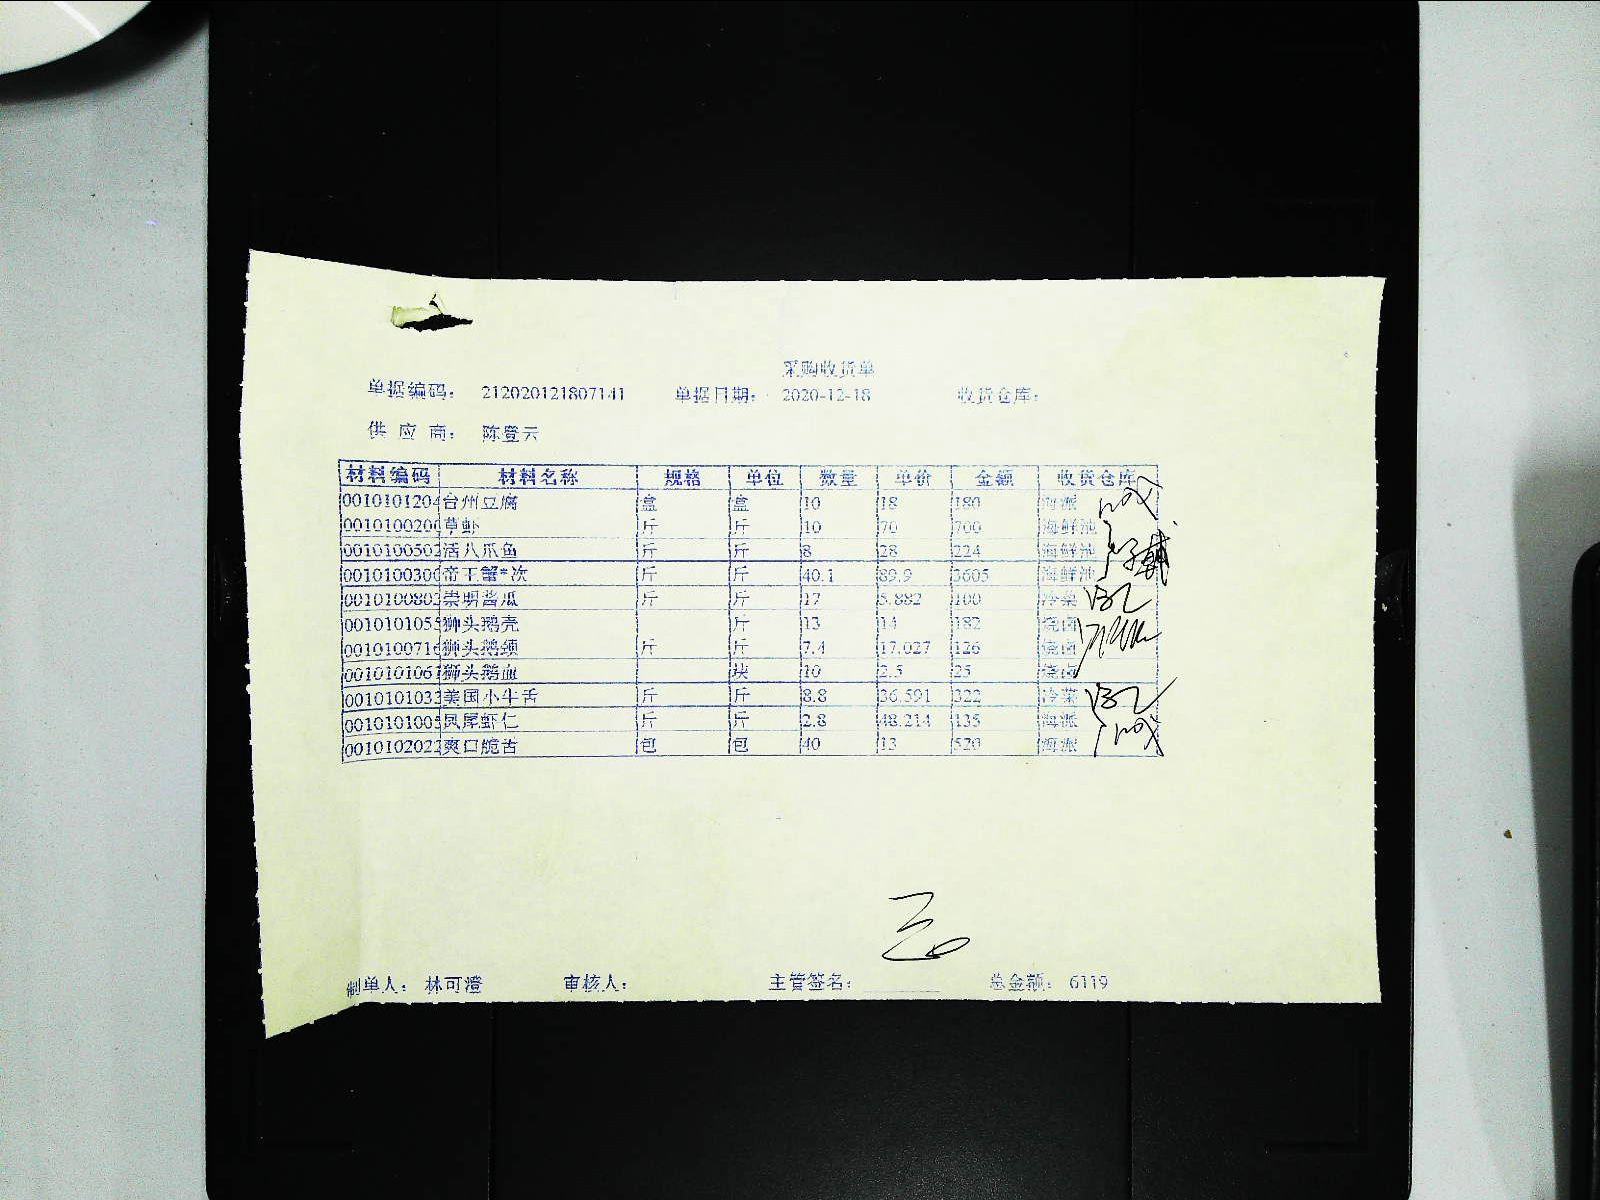 采购收货单
单据编码： 212020121807141 单据日期： 2020-12-18 收货仓库：
供 应 商： 陈登云
材料编码 材料名称 规格 单位 数量 单价 金额 收货仓库
0010101204 台州豆腐 盒 盒 10 18 180 海派
0010100200 草虾 斤 斤 10 70 700 海鲜池
0010100502 活八爪鱼 斤 斤 8 28 224 海鲜池
0010100300 帝王蟹*次 斤 斤 40.1 89.9 3605 海鲜池
0010100802 崇明酱瓜 斤 斤 17 5.882 100 冷菜
0010101055 狮头鹅壳 斤 13 14 182 烧卤
0010100716 狮头鹅颈 斤 斤 7.4 17.027 126 烧卤
0010101067 狮头鹅血 块 10 2.5 25 烧卤
0010101033 美国小牛舌 斤 斤 8.8 36.591 322 冷菜
0010101005 凤尾虾仁 斤 斤 2.8 48.214 135 海派
0010102022 爽口脆舌 包 包 40 13 520 海派
制单人： 林可澄 审核人： 主管签名： 总金额： 6119